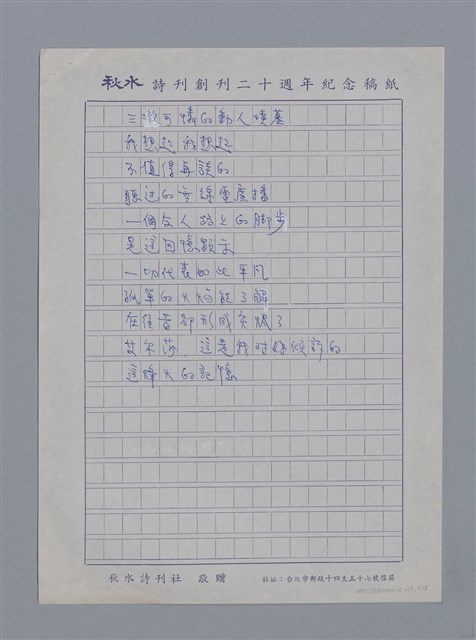 秋水 詩刊創刊二十週年紀念稿紙
三 可憐的動人墳墓
我想起 我想起
不值得再談的
聽过的無線電廣播
一個女人路上的脚步
是這回憶顯示
一切代表如此平凡
孤單的火焰能了解
在往昔却形成灾燬了
艾尔莎，這是我对妳傾訴的
這烽火的記憶
秋水詩刊社 敬贈
社址：台北市郵政十四支五十七號信箱